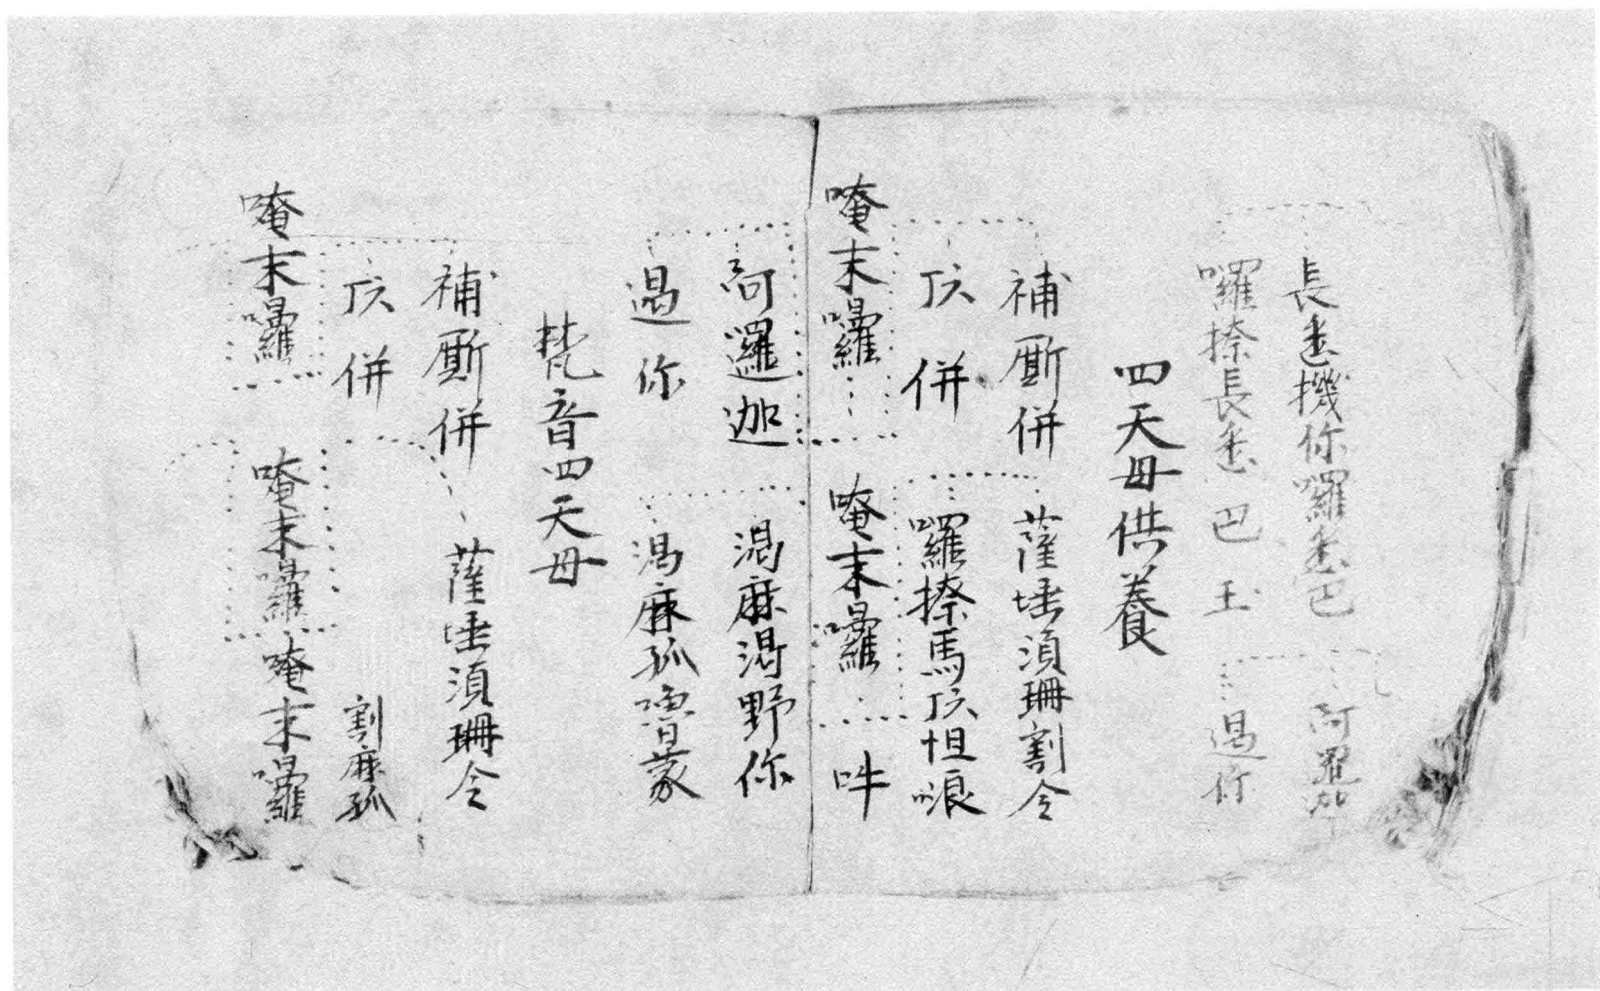 長䖏機你囉䖏巴 阿羅迦
囉捺長䖏巴王 遏你
四天母供養
補厮併 薩埵須珊割令
㡳併 囉捺馬㡳怛哴
唵末囉 唵末囉 吽
阿邏迦 渴麻渴野你
遏你 渴麻孤嚕蒙
梵音四天母
補厮併 薩埵須珊令
㡳併 割麻孤
唵末囉 唵末囉 唵末囉